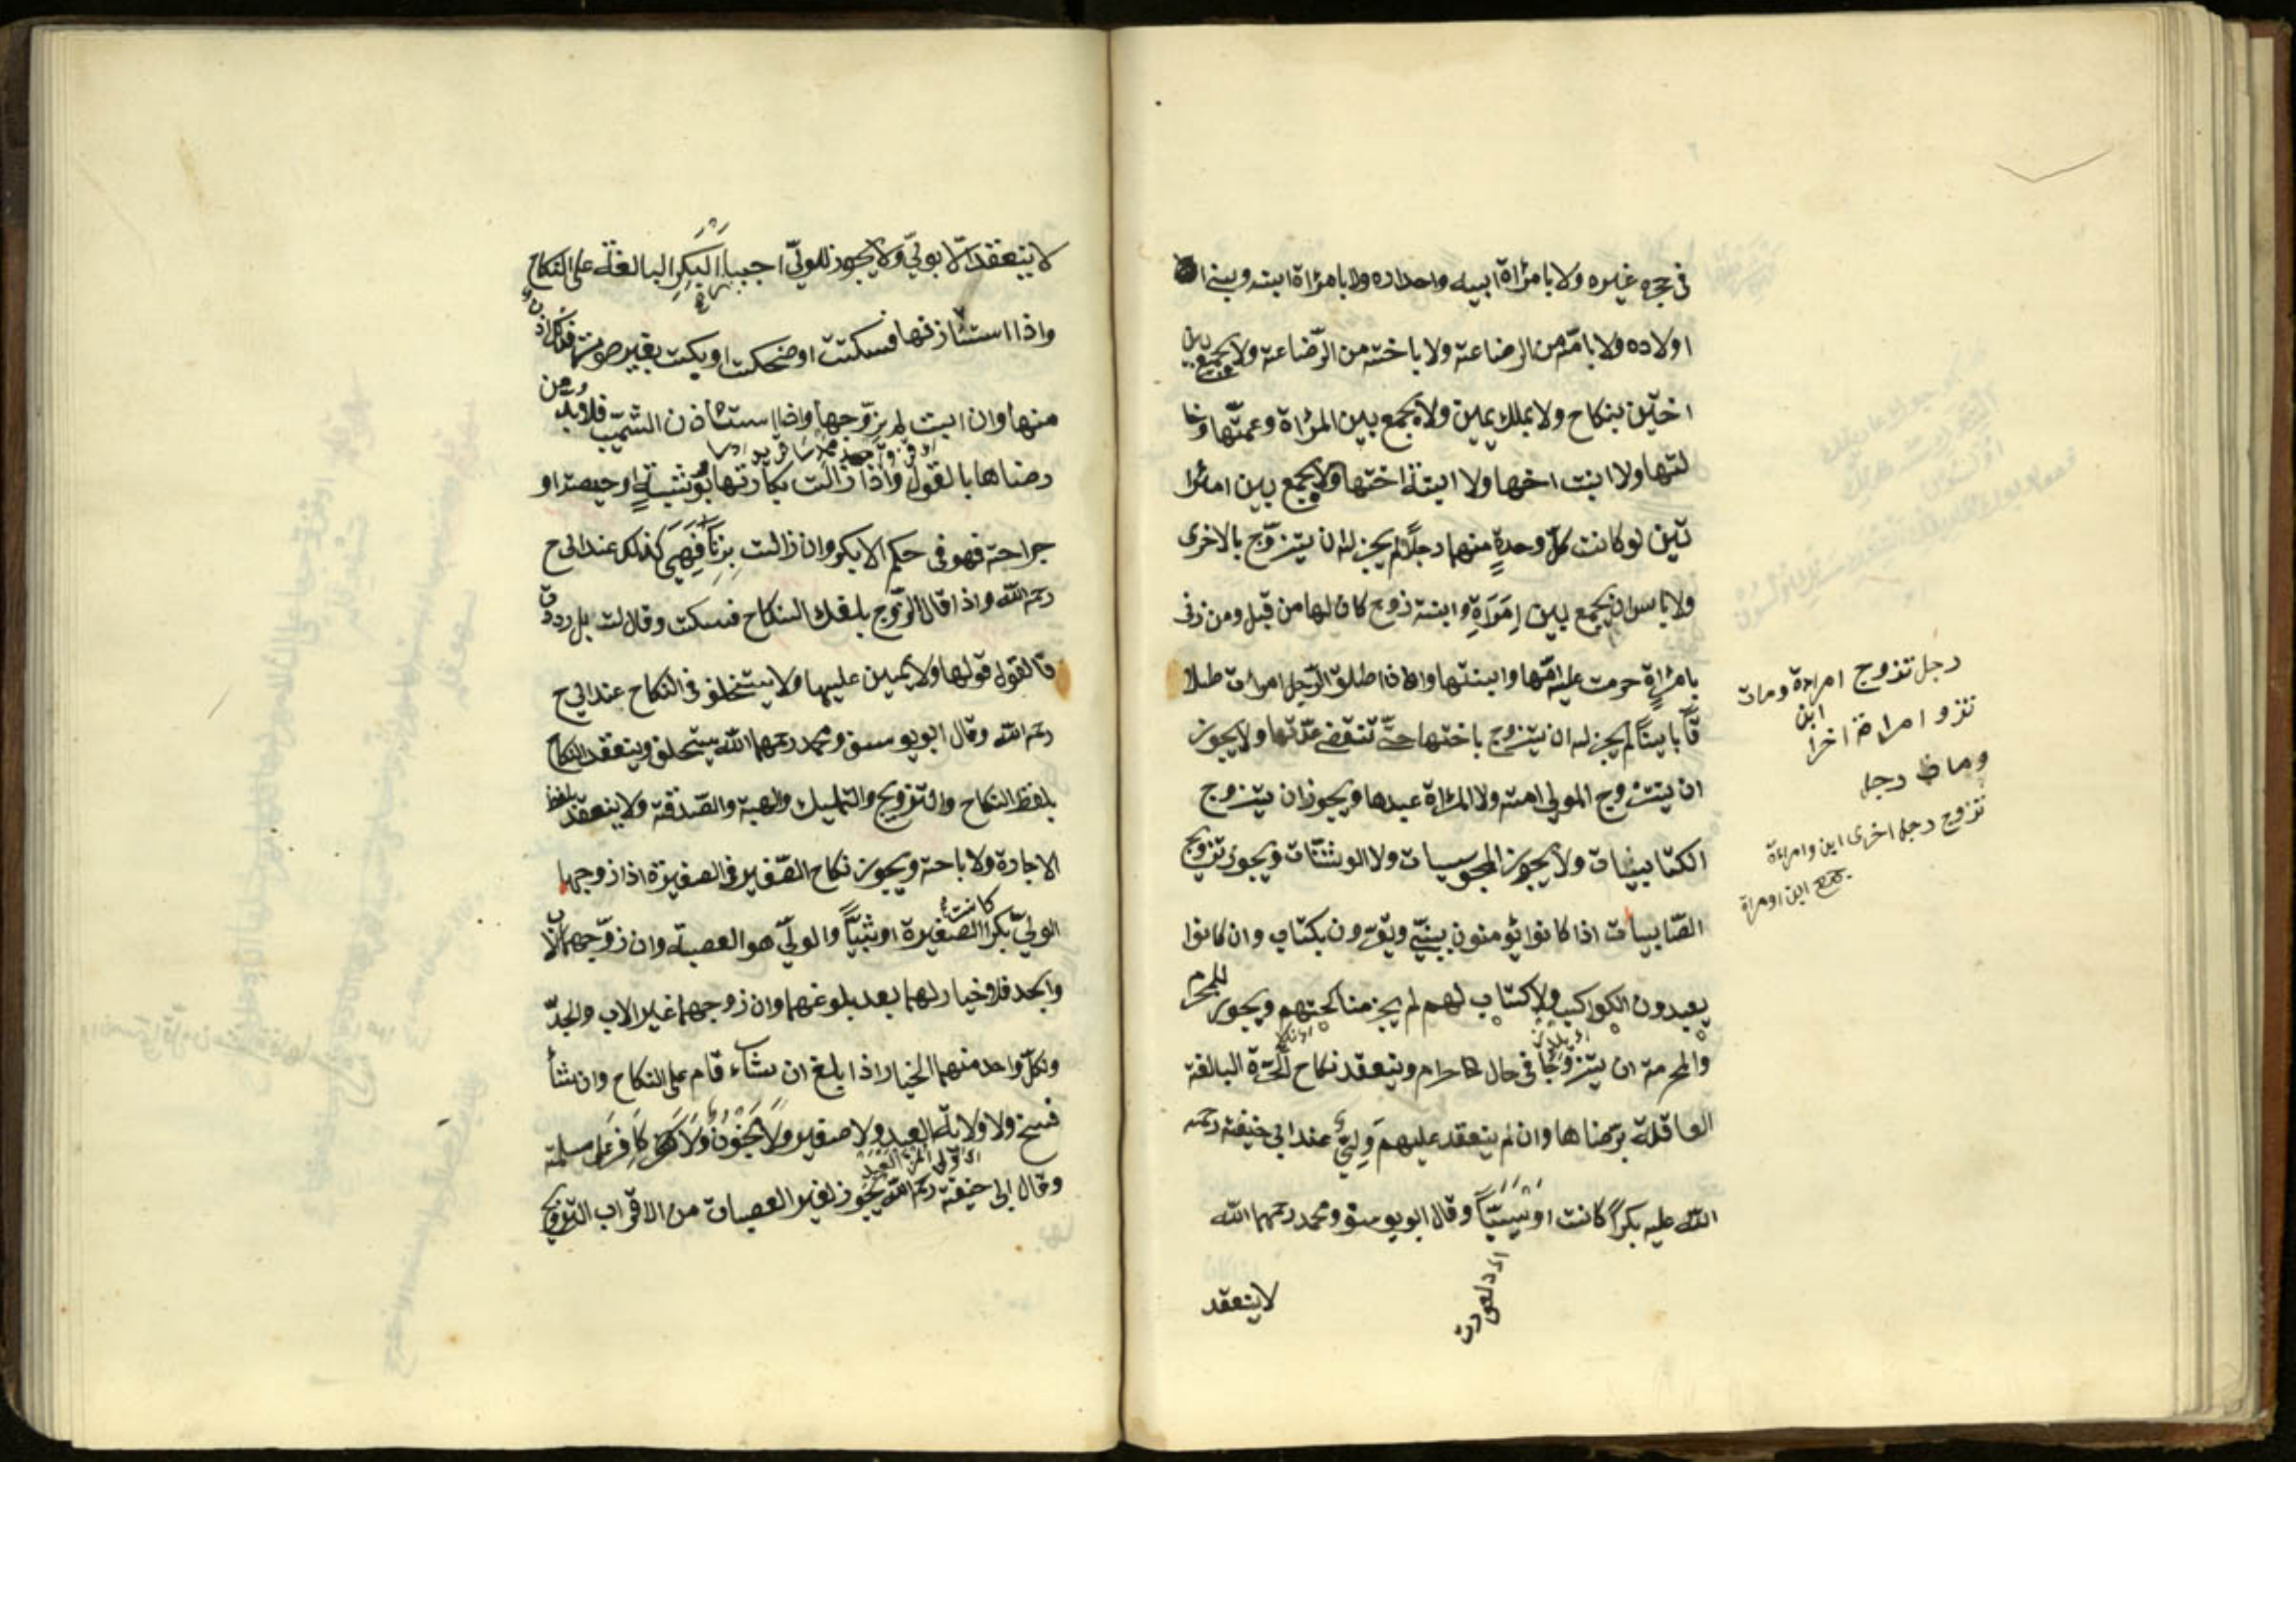 في حجره غيره ولا بامرٔاة ابيه واجداده ولا بامرٔاة ابنه وبني
اولاده ولا بامّه من الرضاعة ولا باخته من الرّضاعة ولا يجمع بين
اختين بنكاح ولا بملك يمين ولا يجمع بين المرٔاة وعمتّها وخا
لتها ولا ابنت اختها ولا ابنة اختها ولا يجمع بين امرٔا
تين لو كانت كلّ وحدةٍ منهما رجلاً لم يجز له ان يتزوّج بالاخرى
ولا باس ان يجمع بين اِمَرَاةٍ وابنة زوج كان لها من قبل ومن زنى
بامرٔاةٍ حرمت عليه امّها وابنتها واذا طلق الرّجل امراته طلا
قاً باينًا لم يجز له ان يتزوج باختها حتّى تنقضى عدّتها ولا يجوز
ان يتزوج المولى امته ولا المرٔاة عبدها ويجوز ان يتزوج
الكتابيات ولا يجوز المجوسيات ولا الوثنّات ويجوز تزويج
الصّابيات اذا كانوا يؤمنون بنبيّ ويقرّون بكتاب وان كانوا
يعبدون الكواكب ولا كتاب لهم لم يجز مناكحتهم ويجوز للمحرم
والمحرمة ان يتزوّجا في حال الاحرام وينعقد نكاح الحرّة البالغة
العاقلة برضاها وان لم ينعقد عليهم وليّ عند ابي حنيفة رحمه
الله عليه بكراً كانت او ثيبّاً وقال ابو يوسف ومحمد رحمهما الله
لا ينعقد
رجل تزوج امراة ومات
ابن
تزو امراة اخرا
وماة رجل
تزوج رجل اخرى ابن وامراة
يجمع ابن اومراة
لا ينعقد الّا بوليّ ولا يجوز للوليّ اجبار البكر البالغة على النكاح
واذا استٔاذنها فسكتت او ضحكت او بكت بغير صوت فذلك اذن
منها وان ابت لم يزوّجها واذا استٔاذن الثيّب فلا بد من
رضاها بالقول واذا زالت بكارتها بوثبةٍ او حيضة او
جراحة فهو فى حكم الابكار وان زالت بزناً فهي كذلك عند ابي ح
رحمه الله واذا قال الزّوج بلغك النكاح فسكت وقالت بل رددت
فالقول قولها ولا يمين عليها ولا يستحلف في النكاح عند ابي ح
رحمه الله وقال ابو يوسف ومحمد رحمهما الله يستحلف وينعقد النكاح
بلفظ النكاح والتزويج والتمليك والهبة والصّدقة ولا ينعقد بلفظ
الاجارة ولا باحة ويجوز نكاح الصّغير والصغيرة اذا زوجهما
كانت
الوليّ بكرا الصغيرة او ثيبّاً والوليّ هو العصبة وان زوّجهما الاب
والجد فلا خيار لهما بعد بلوغهما وان زوجهما غير الاب والجدّ
ولكلّ واحد منهما الخيار اذا بلغ ان شاء قام على النكاح وان شأ
فسخ ولا ولاية العبد ولا صغير ولا مجنون ولا كافر على مسلمة
وقال ابى حنيفة رحمه الله يجوز لغير العصبات من الاقراب التزويج